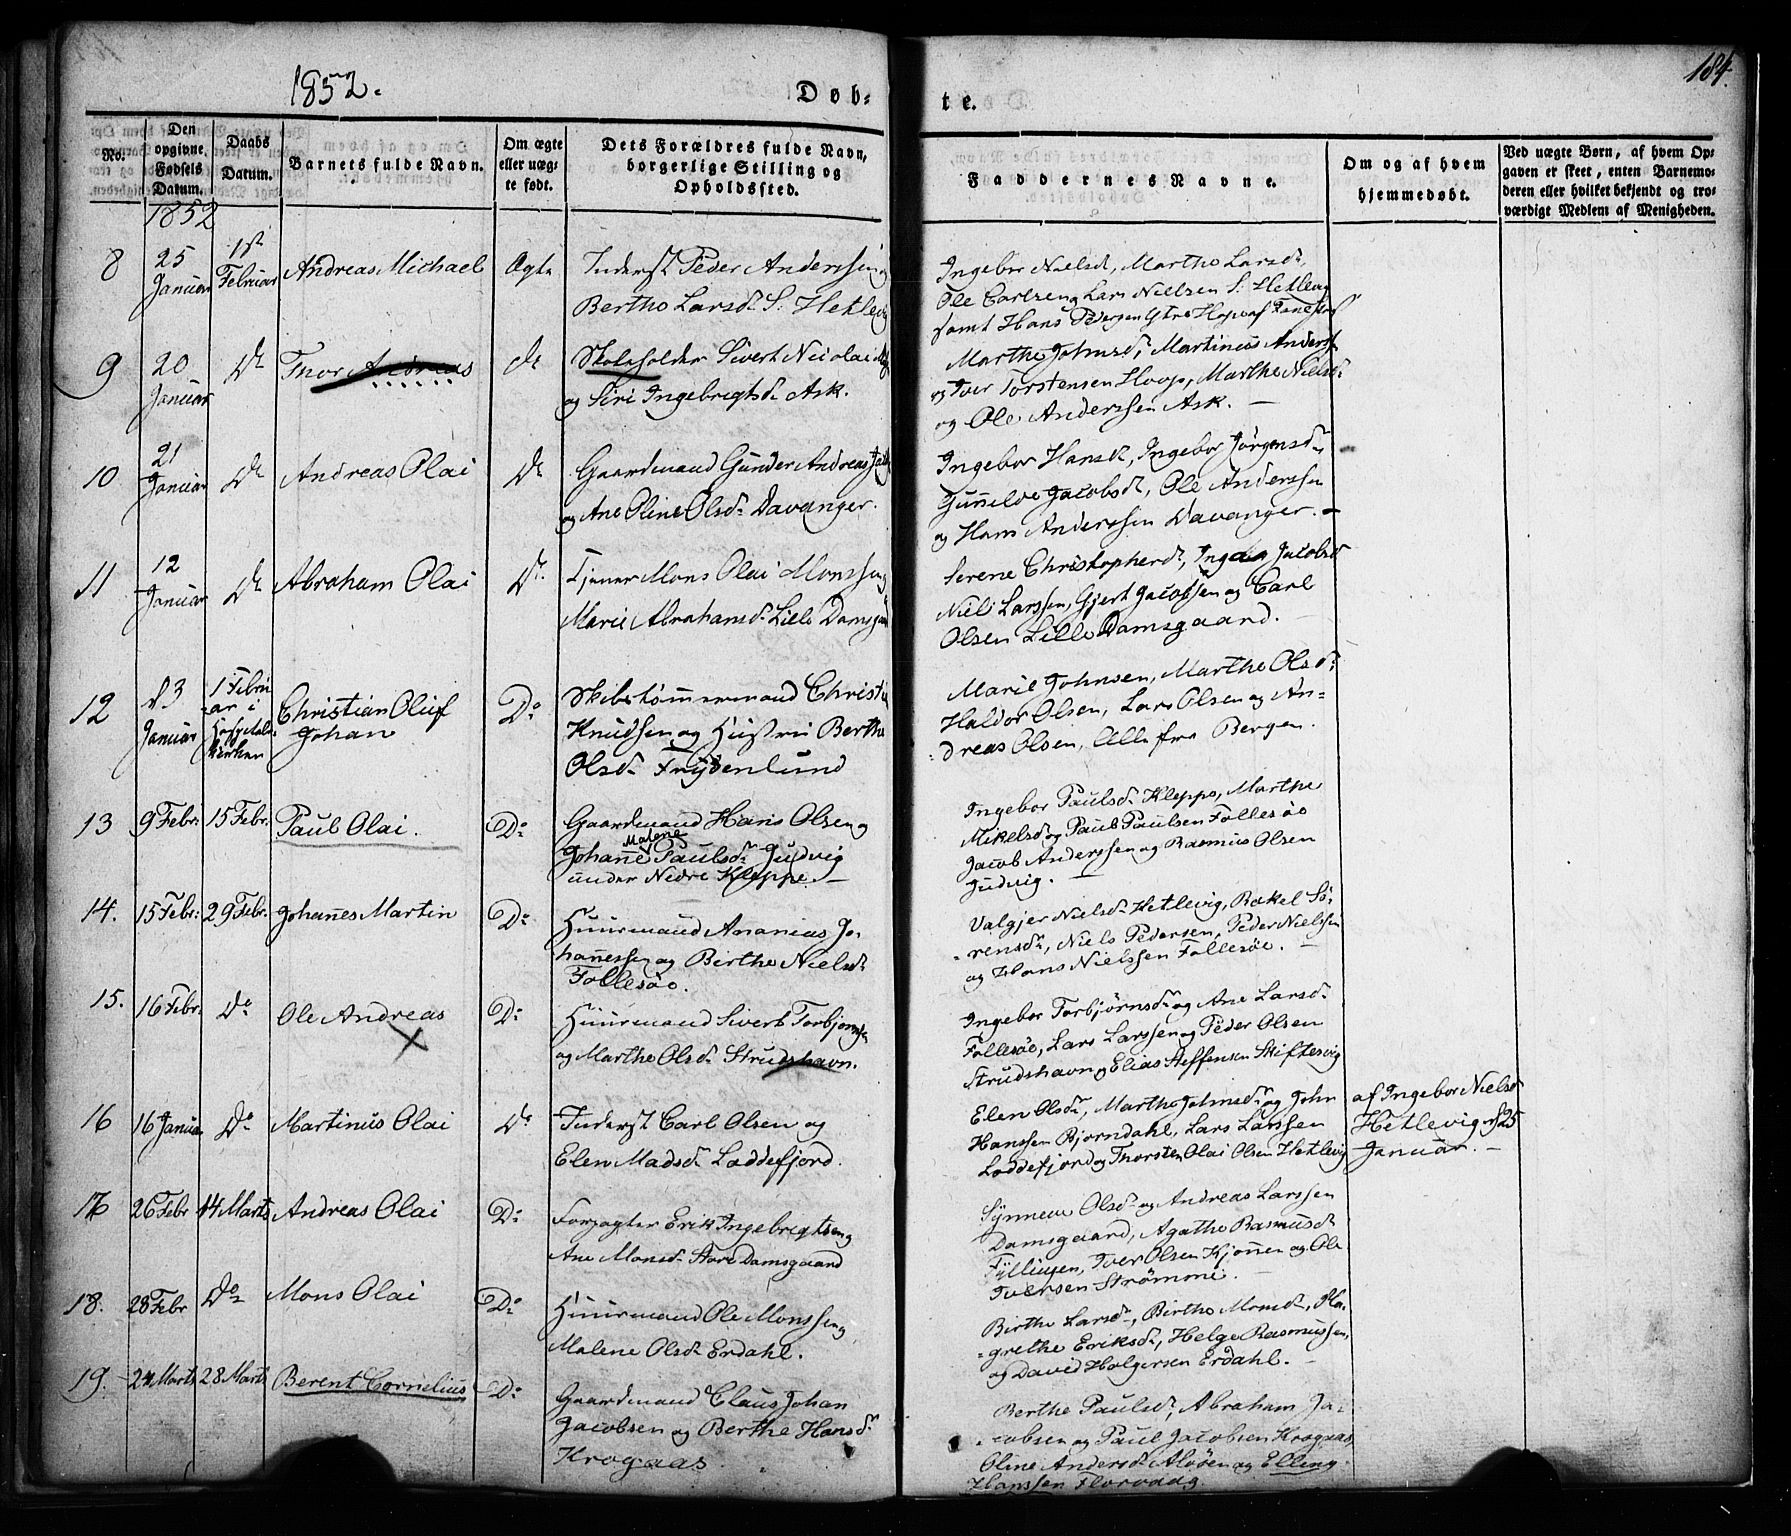 1852.
Døb-
te.
184.
No.
Den opgivne Fødsels Datum.
Daabs Datum.
Barnets fulde Navn.
Om ægte eller uæg- te født.
Dets Forældres fulde Navn, borgerlige Stilling og Opholdssted.
Faddernes Navne.
Om og af hvem hjemmedøbt.
Ved uægte Børn, af hvem Op-
gaven er skeet, enten Barnemo-
deren eller hvilket bekjendt og tro-
værdigt Medlem af Menigheden.
1852
8
25 Januar
1st Februar
Andreas Michael
Ægte
Inderst Peder Anderssen og
Berthe Larsd. S: Hetlevig
Ingebor Nielsd., Marthe Larsd.,
Ole Carlsen og Lars Nielssen S: Hetlevig
samt Hans Pedersen Ytre Hop af Fane
9
20 Januar
Do
Thor Andreas
do
Skoleholder Sivert Nicolai
og Siri Ingebrigtsd. Ask.
Marthe Johnsd., Martinus Anders
og Iver Torstensen Hoop, Marthe Nielsd.
og Ole Anderssen Ask. –
10
21 Januar
Do
Andreas Olai
Do
Gaardmand Gunder Andreas
og Ane Oline Olsd. Davanger.
Ingebor Hansd., Ingebor Jørgensd.
Gunnilde Jacobsd., Ole Anderssen
og Hans Anderssen Davanger. –
11
12 Januar
Do
Abraham Olai
Do.
Tjener Mons Olai Monssen og
Marie Abrahamsd. Lille Damsgaard
Serene Christopherd., Jacobsd
Niels Larssen, Gjert Jacobsen og Carl
Olsen Lille Damsgaard.
12
d3 Januar
1 Febru-
ar i
Hospitals-
kirken
Christian Oluf
Johan
Do
Skibstømmermand Christian
Knudsen og Hustru Berthe
Olsd. Frydenlund
Marie Johnsen, Marthe Olsd.
Haldor Olsen, Lars Olsen og An-
dreas Olsen, Alle fra Bergen.
13
9 Febr:
15 Febr.
Paul Olai.
Do
Gaardmand Hans Olsen og
Malene
Johanne Paulsd. Judvig
under Nedre Kleppe. –
Ingebor Paulsd. Kleppe, Marthe
Mikelsd og Paul Paulsen Follesøe
Jacob Anderssen og Rasmus Olsen
Judvig. –
14.
15 Febr:
29 Febr.
Johannes Martin
Do
Huusmand Ananias Jo-
hannessen og Berthe Nielsd.
Follesøe.
Valgjer Nielsd. Hetlevig, Rakel Sø-
rensd., Niels Pedersen, Peder Nielssen
og Hans Nielssen Follesøe. –
15.
16 Febr.
Do
Ole Andreas
Do
Huusmand Sivert Torbjørns
og Marthe Olsd. Strudshavn.
Ingebor Torbjørnsd. og Ane Larsd.
Follesøe, Lars Larssen og Peder Olsen
Strudshavn og Elias Steffensen Skiftesvig
16
16 Januar
Do
Martinus Olai
Do
Inderst Carl Olsen og
Elen Madsd. Loddefjord.
Elen Olsd., Marthe Johnsd. og John
Hanssen Bjorndahl, Lars Larssen
Loddefjord og Thorsten Olai Olsen Hetlevig
af Ingebor Nielsd
Hetlevig d 25
Januar. –
17
26 Febr
14 Marts
Andreas Olai
Do
Forpagter Erik Ingebrigtsen og
Ane Monsd. Store Damsgaard
Synneve Olsd. og Andreas Larssen
Damsgaard, Agathe Rasmusd.
Fyllingen, Iver Olsen Kjønen og Ole
Iversen Strømme. –
18.
28 Febr
Do
Mons Olai
Do
Huusmand Ole Monssen og
Malene Olsd. Erdahl.
Birthe Larsd., Birthe Monsd.,
grethe Eriksd., Helge Rasmussen,
og David Holgersen Erdahl. –
19.
24 Marts
28 Marts
Berent Cornelius
Do
Gaardmand Claus Johan
Jacobsen og Berthe Hansd.
Krogaas
Berthe Paulsd., Abraham Ja-
cobsen og Paul Jacobsen Krogaas,
Oline Andersd. Aløen og Elling
Hanssen Florvaag